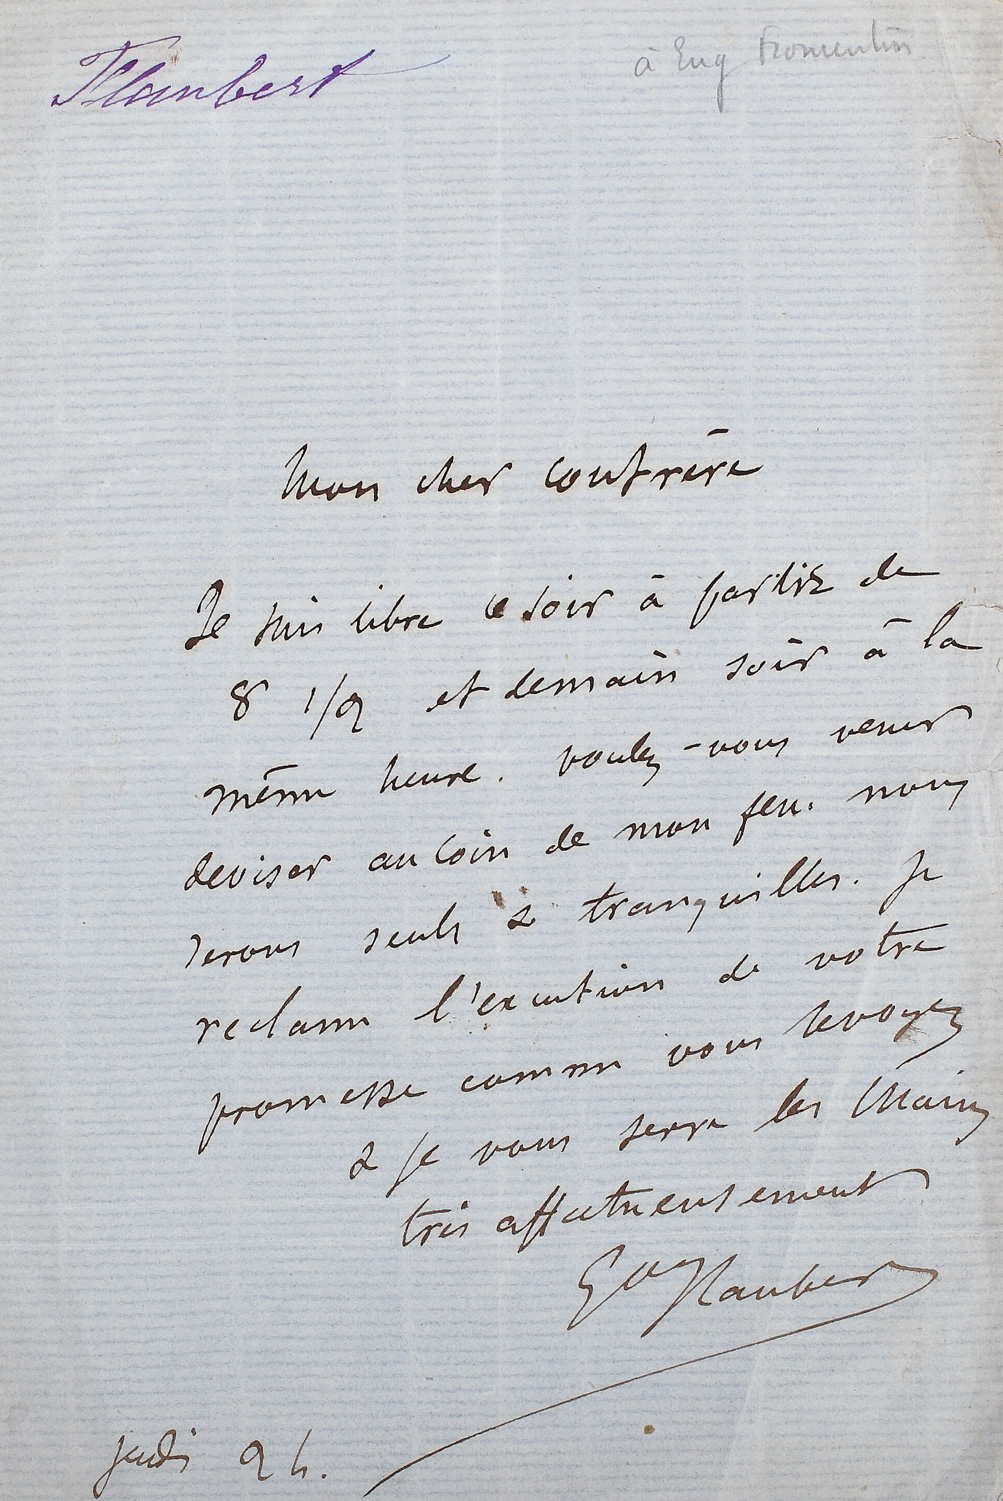 Flaubert
à Eug Fromentin
Mon cher confrère
Je suis libre ce soir à partir de
8 1/2 et demain soir à la
même heure. voulez-vous venir
deviser au coin de mon feu. nous
serons seuls & tranquilles. Je
reclame l'execution de votre
promesse comme vous le voyez
& je vous serre les mains
très affectueusement
Gve Flaubert
jeudi 24.